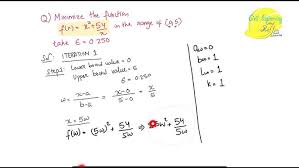 Q) Minimize the function
f(x) = x² + 54/x in the range of (0,5)
take ε = 0.250
ITERATION 1
Step 1: Lower bound value = 0
Upper bound value = 5
ε = 0.250
w = x-a/b-a = x-0/5-0 = x/5
x = 5w
f(w) = (5w)² + 54/5w ⇒ 25w² + 54/5w
aw = 0
bw = 1
Lw = 1
k = 1